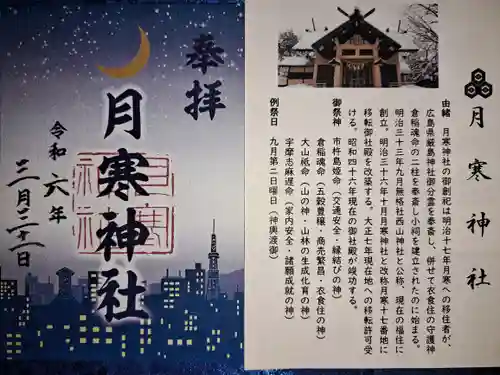 奉拝
月寒神社
令和六年
三月三十一日
月寒神社
由緒 月寒神社の御創祀は明治十七年月寒への移住者が、
広島県厳島神社御分霊を奉斎し、併せて衣食住の守護神
倉稲魂命の二柱を奉斎し小祠を建立されたのに始まる。
明治三十三年九月無格社西山神社と公称、現在の福住に
創立。明治三十六年十月月寒神社と改称月寒十七番地に
移転御社殿を改築する。大正七年現在地への移転許可受
ける。昭和四十六年現在の御社殿が竣功する。
御祭神 市杵島姫命（交通安全・縁結びの神）
倉稲魂命（五穀豊穣・商売繁昌・衣食住の神）
大山祗命（山の神・山林の生成化育の神）
宇摩志麻遅命（家内安全・諸願成就の神）
例祭日 九月第二日曜日（神輿渡御）